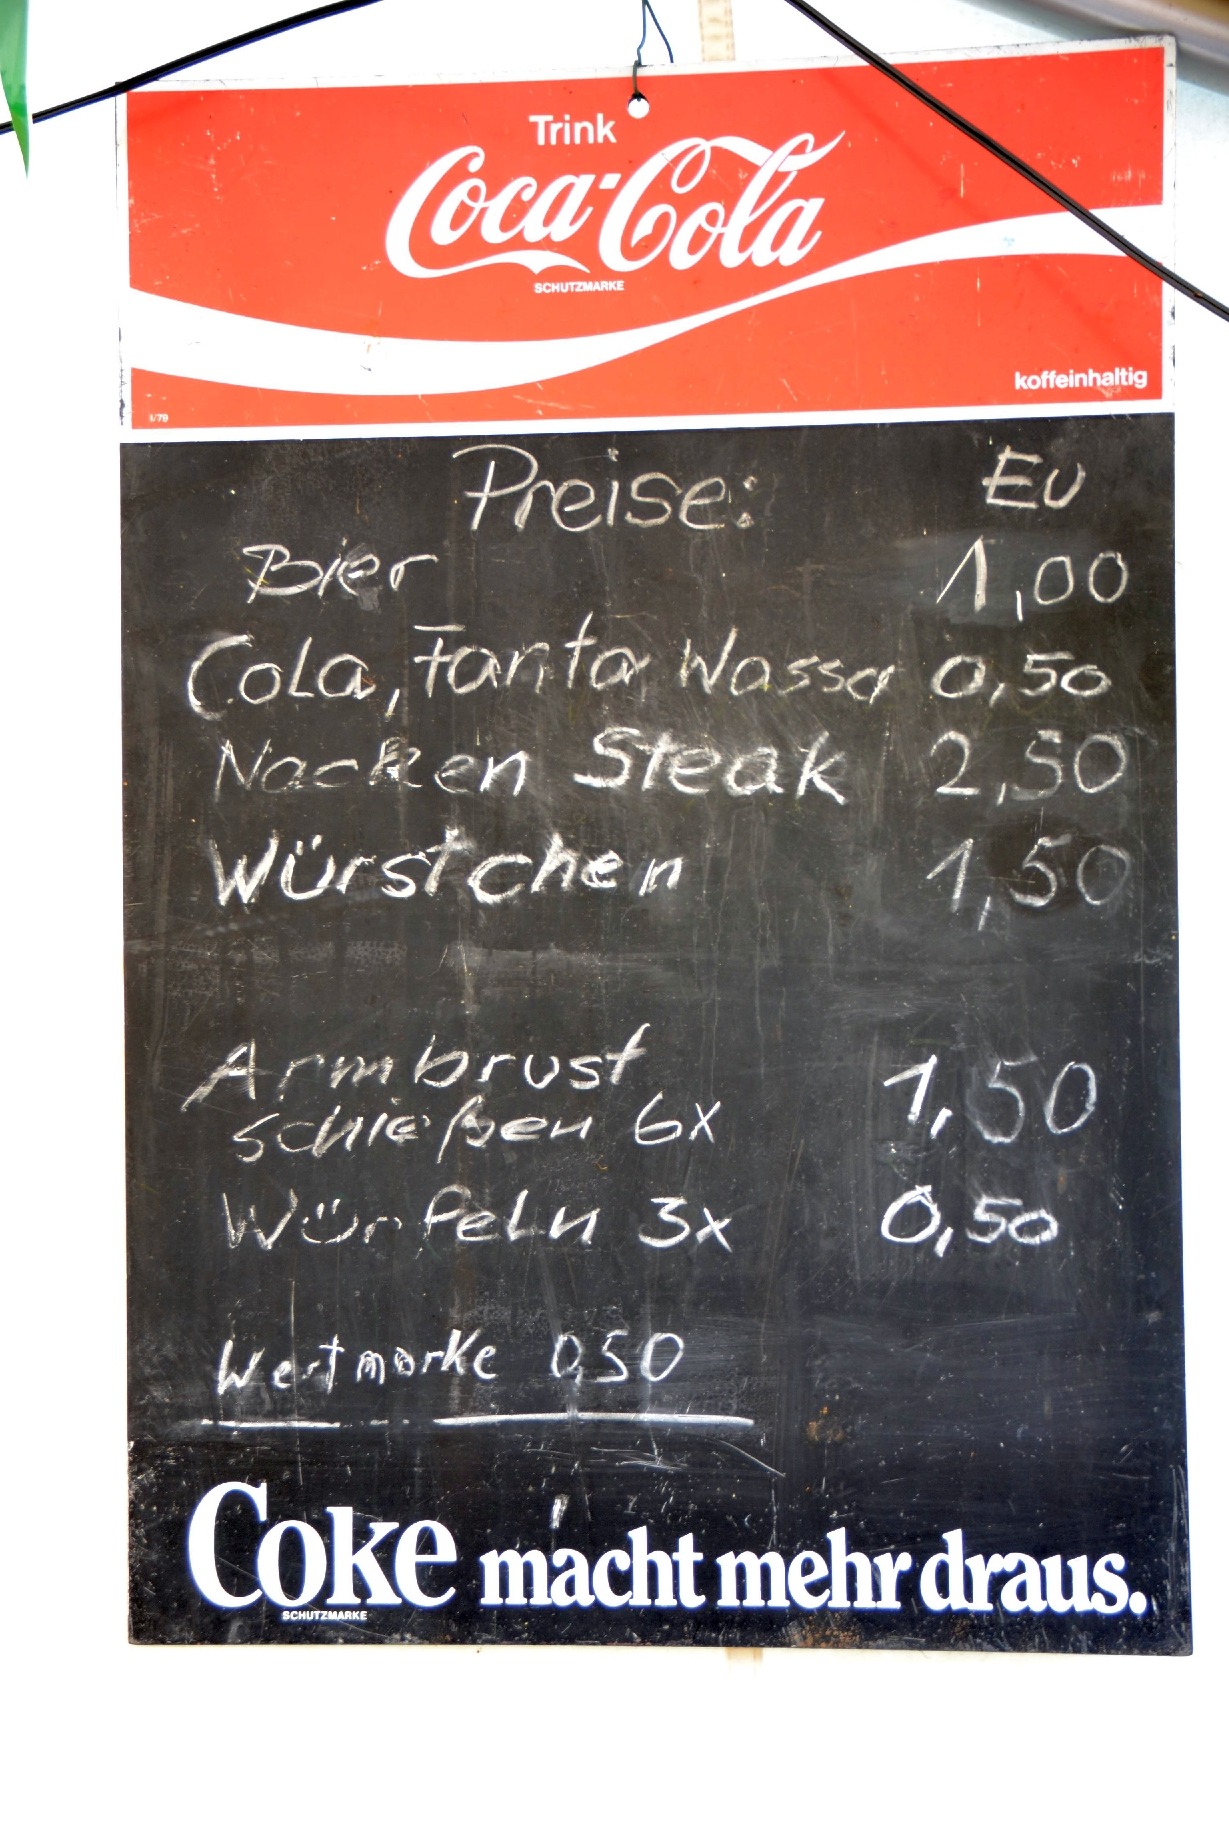 Trink
Coca-Cola
SCHUTZMARKE
koffeinhaltig
1/79
Preise: EU
Bier 1,00
Cola, Fanta Wasser 0,50
Nacken Steak 2,50
Würstchen 1,50
Armbrust
schießen 6x 1,50
Würfeln 3x 0,50
Wertmarke 0,50
Coke macht mehr draus.
SCHUTZMARKE